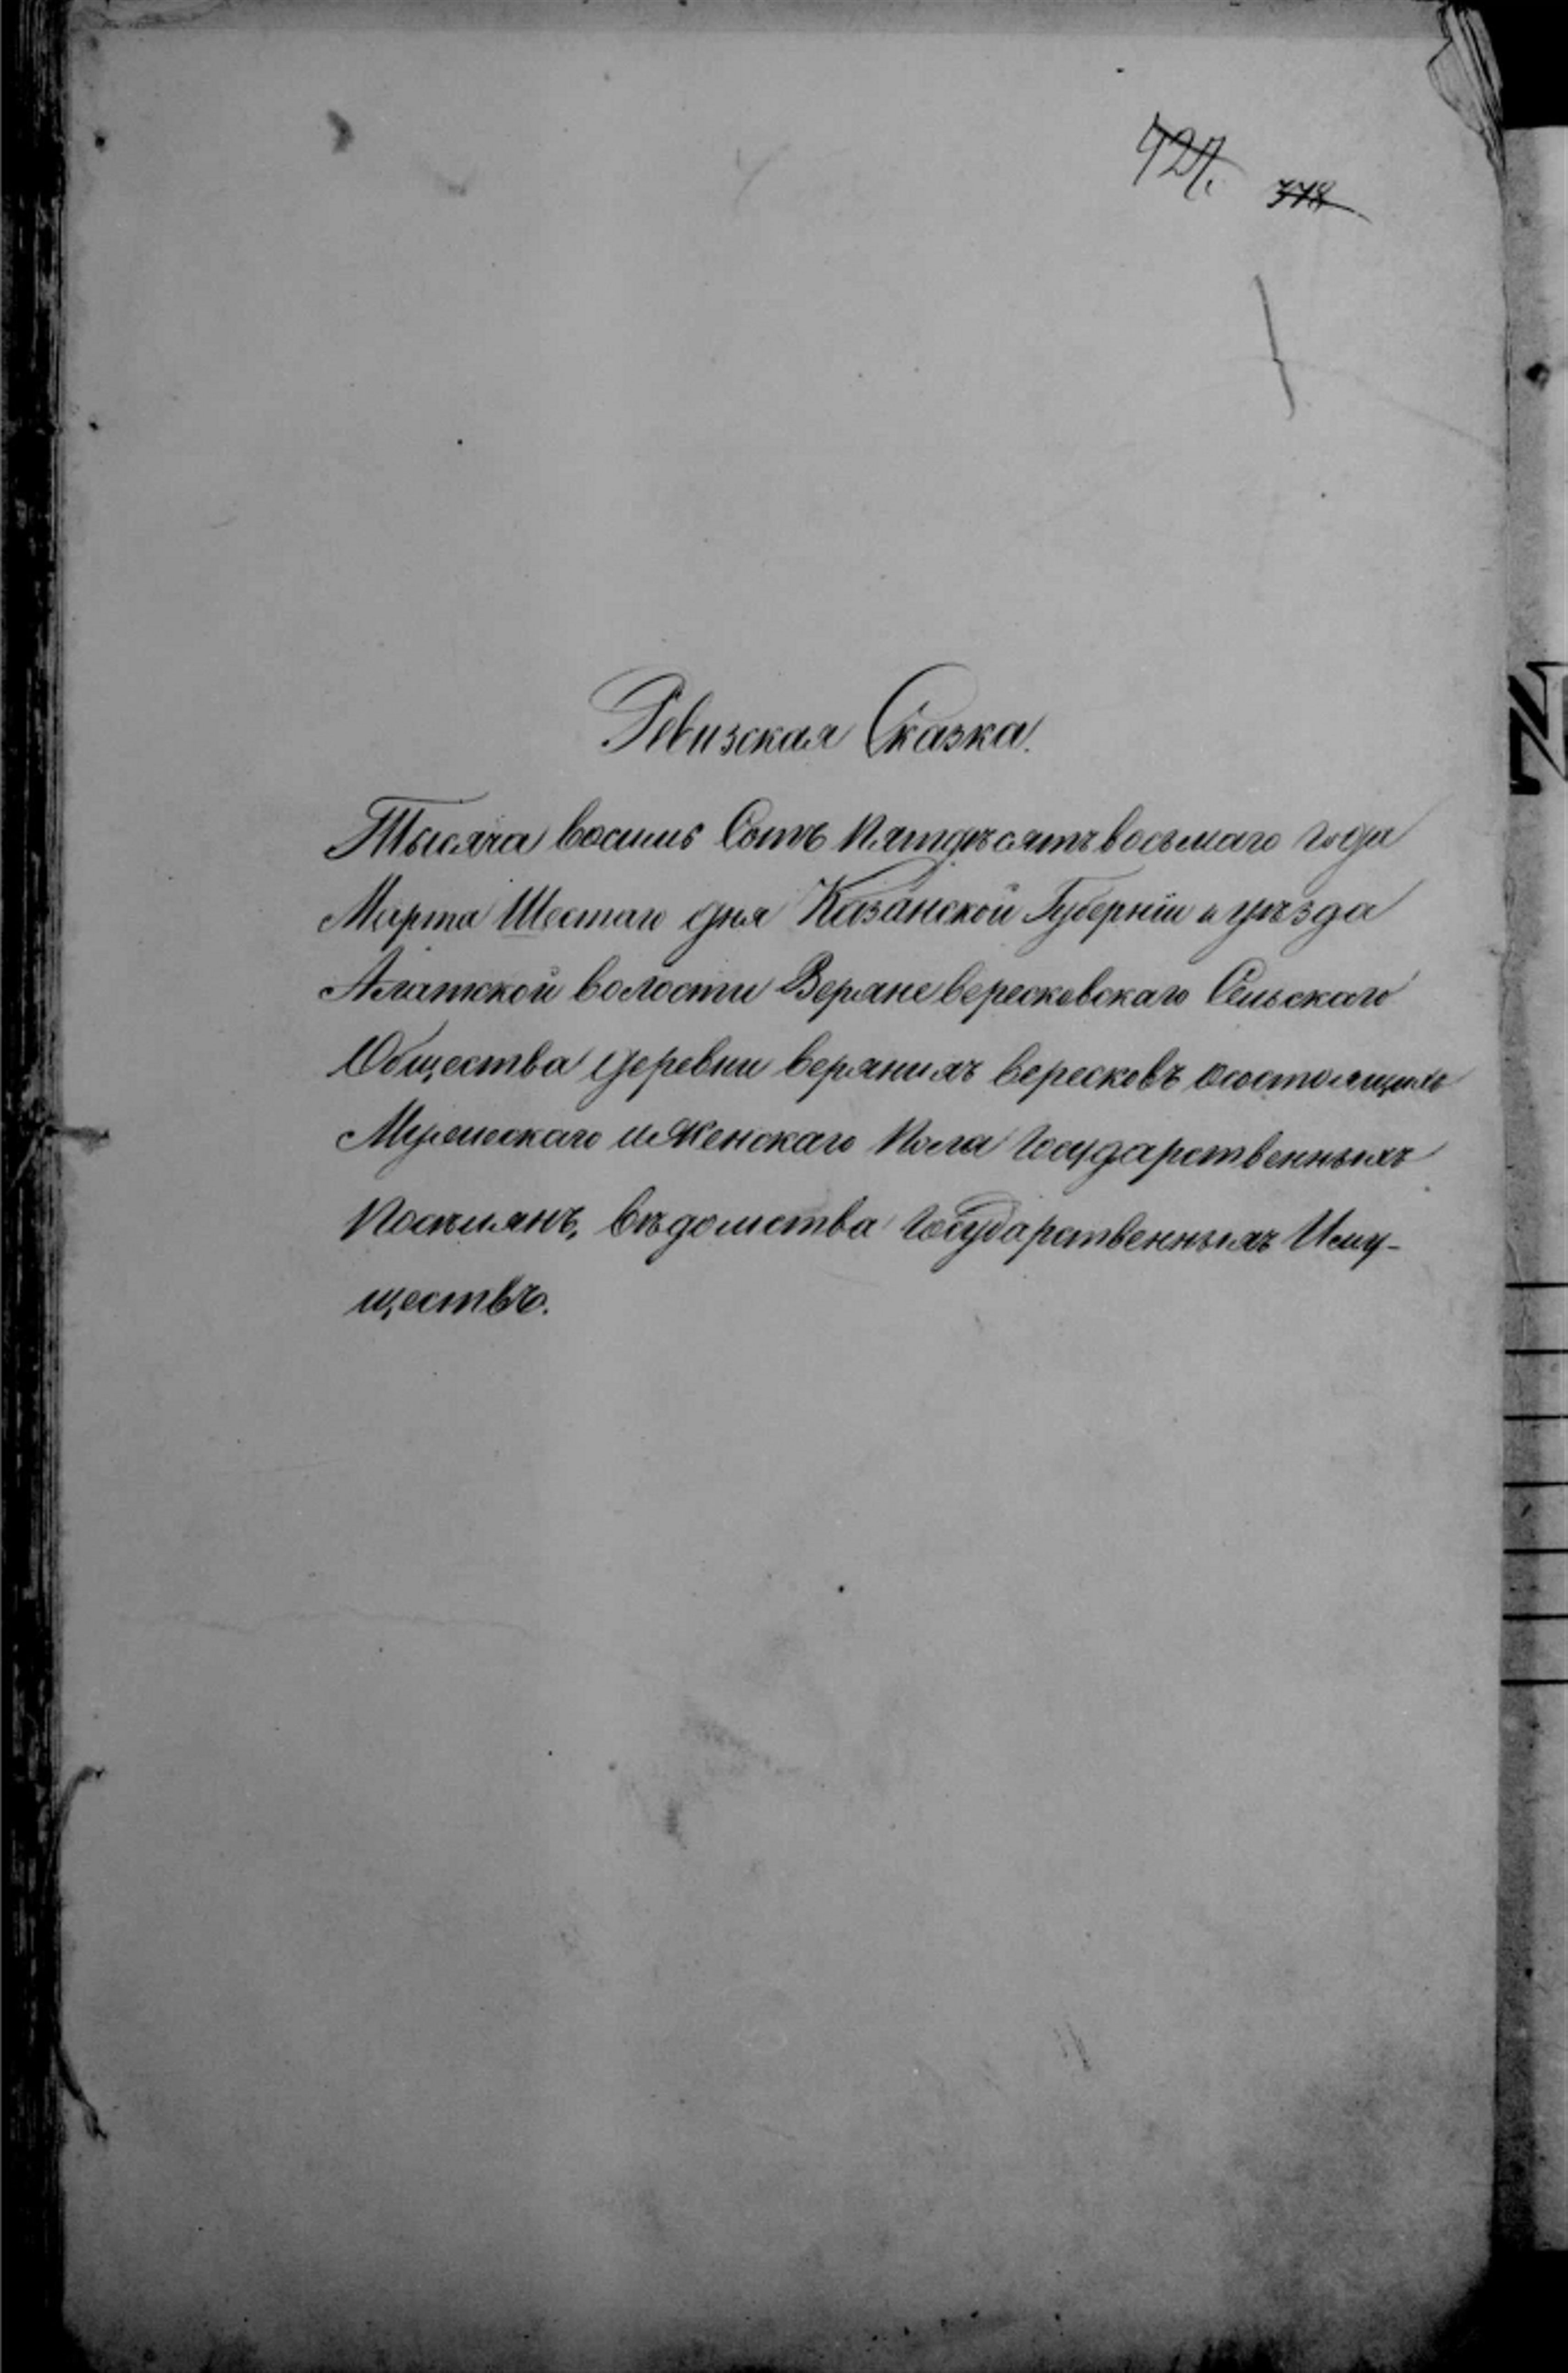 427.
378
Ревизская Сказка.
Тысяча восемь Сотъ Пятдѣсятъ восьмаго года
Марта Шестаго дня Казанской Губерніи и уѣзда
Алатской волости Верхне вересковскаго Сельскаго
Общества деревни верхнихъ вересковъ осостоящихъ
Мужескаго и Женскаго Пола Государственныхъ
Поселянъ, вѣдомства Государственныхъ Иму-
ществъ.